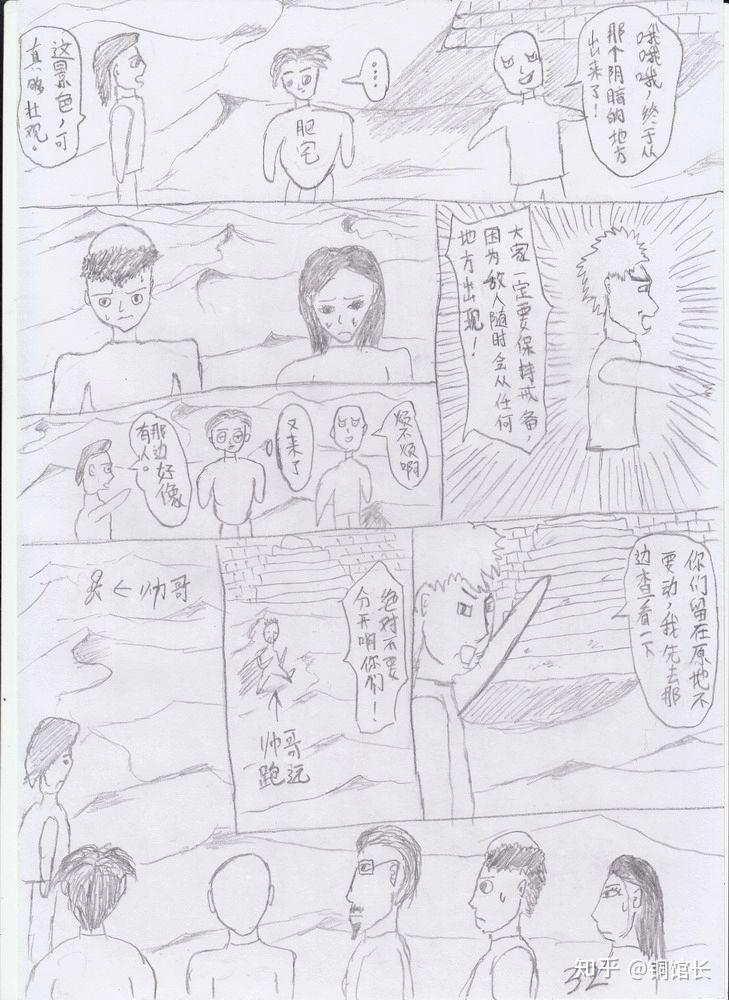 哦哦哦，终于从
那个阴暗的地方
出来了！
····
肥宅
这景色，可
真够壮观。
大家一定要保持戒备，
因为敌人随时会从任何
地方出现！
烦不烦啊
又来了
那边好像
有人。
你们留在原地不
要动，我先去那
边查看一下
绝对不要
分开啊你们！
↑
帅哥
跑远
←帅哥
32
知乎 @铜馆长